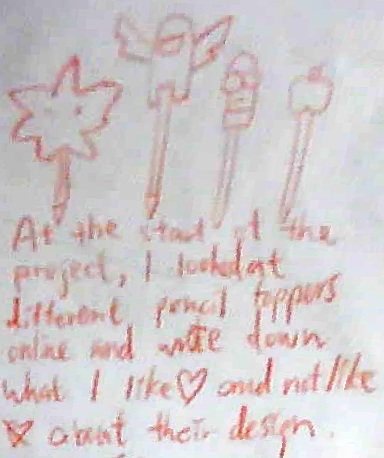 At the start of the
project, I looked at
different pencil toppers
online and wrote down
what I like♡ and not like
about their design.